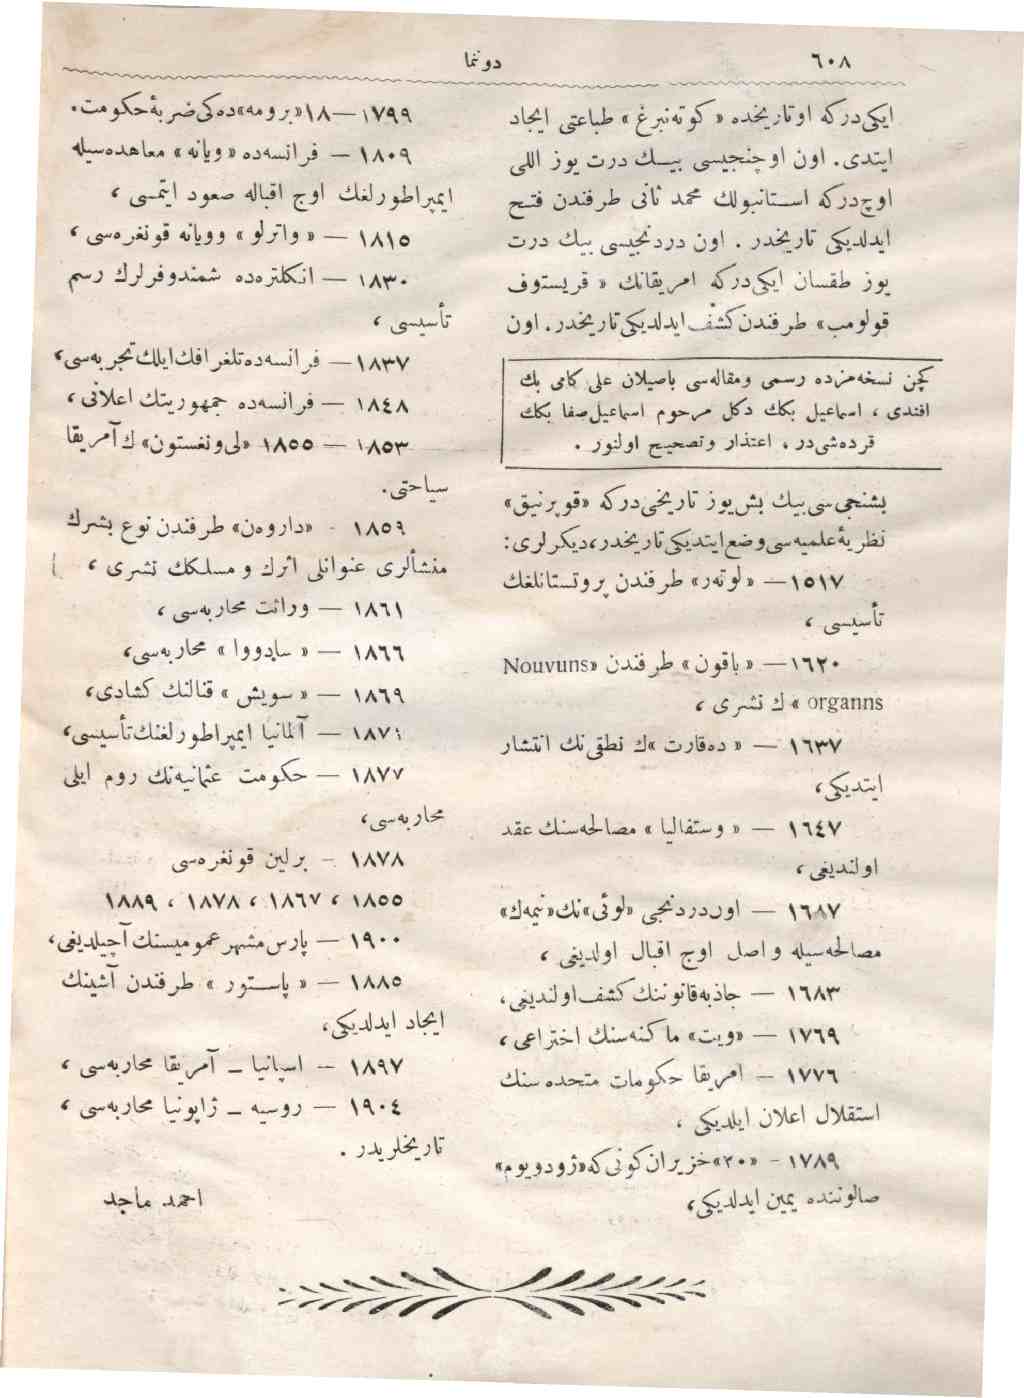 ٦٠٨
دوننما
ايكى‌دركه او تاريخده « كوته‌نبرغ » طباعتى ايجاد
ايتدى . اون اوچنجيسى بيك درت يوز اللى
اوچ‌دركه استانبولك محمد ثانى طرفندن فتح
ايدلديكى تاريخدر . اون دردنجيسى بيك درت
يوز طقسان ايكى‌دركه امريقانك « قريستوف
قولومب» طرفندن كشف ايدلديكى تاريخدر . اون
كچن نسخه‌مزده رسمى ومقاله‌سى باصيلان على كامى بك
افندى ، اسماعيل بكك دكل مرحوم اسماعيل صفا بكك
قرده‌شى‌در ، اعتذار وتصحيح اولنور .
بشنجى‌سى بيك بش‌يوز تاريخى‌دركه «قوپرنيق»
نظريۀ علميه‌سى وضع ايتديكى تاريخدر، ديكرلرى :
١٥١٧ — « لوته‌ر» طرفندن پروتستانلغك
تأسيسى ،
١٦٢٠ — « باقون » طرفندن «Nouvuns
organns » ك نشرى ،
١٦٣٧ — « ده‌قارت »ك نطقى‌نك انتشار
ايتديكى،
١٦٤٧ — « وستفاليا » مصالحه‌سنك عقد
اولنديغى ،
١٦٨٧ — اون‌دردنجى «لوئى»نك «نيمه‌ك»
مصالحه‌سيله واصل اوج اقبال اولديغى ،
١٦٨٣ — جاذبه‌قانوننك كشف اولنديغى،
١٧٦٩ — «ويت» ماكنه‌سنك اختراعى ،
١٧٧٦ — امريقا حكومات متحده سنك
استقلال اعلان ايلديكى ،
١٧٨٩ - «٢٠» خزيران كونى‌كه «ژودوپوم»
صالوننده يمين ايدلديكى،
١٧٩٩ — ١٨ «برومه» ده‌كى ضربۀ حكومت.
١٨٠٩ — فرانسه‌ده « ويانه » معاهده‌سيله
ايمپراطورلغك اوج اقباله صعود ايتمسى ،
١٨١٥ — « واترلو » وويانه قونغره‌سى ،
١٨٣٠ — انكلتره‌ده شمندوفرلرك رسم
تأسيسى ،
١٨٣٧ — فرانسه‌ده تلغرافك ايلك تجربه‌سى،
١٨٤٨ — فرانسه‌ده جمهوريتك اعلانى ،
١٨٥٣ — ١٨٥٥ «لى‌ونغستون» ك آمريقا
سياحتى.
١٨٥٩ - «داروه‌ن» طرفندن نوع بشرك
منشألرى عنوانلى اثرك و مسلكك نشرى ،
١٨٦١ — وراثت محاربه‌سى ،
١٨٦٦ — « سادووا » محاربه‌سى،
١٨٦٩ — « سويش » قنالنك كشادى،
١٨٧١ — آلمانيا ايمپراطورلغنك تأسيسى،
١٨٧٧ — حكومت عثمانيه‌نك روم ايلى
محاربه‌سى،
١٨٧٨ - برلين قونغره‌سى
١٨٥٥ ، ١٨٦٧ ، ١٨٧٨ ، ١٨٨٩
١٩٠٠ — پارس مشهر عموميسنك آچيلديغى،
١٨٨٥ — « پاستور » طرفندن آشينك
ايجاد ايدلديكى،
١٨٩٧ — اسپانيا — آمريقا محاربه‌سى ،
١٩٠٤ — روسيه — ژاپونيا محاربه‌سى ،
تاريخلريدر .
احمد ماجد